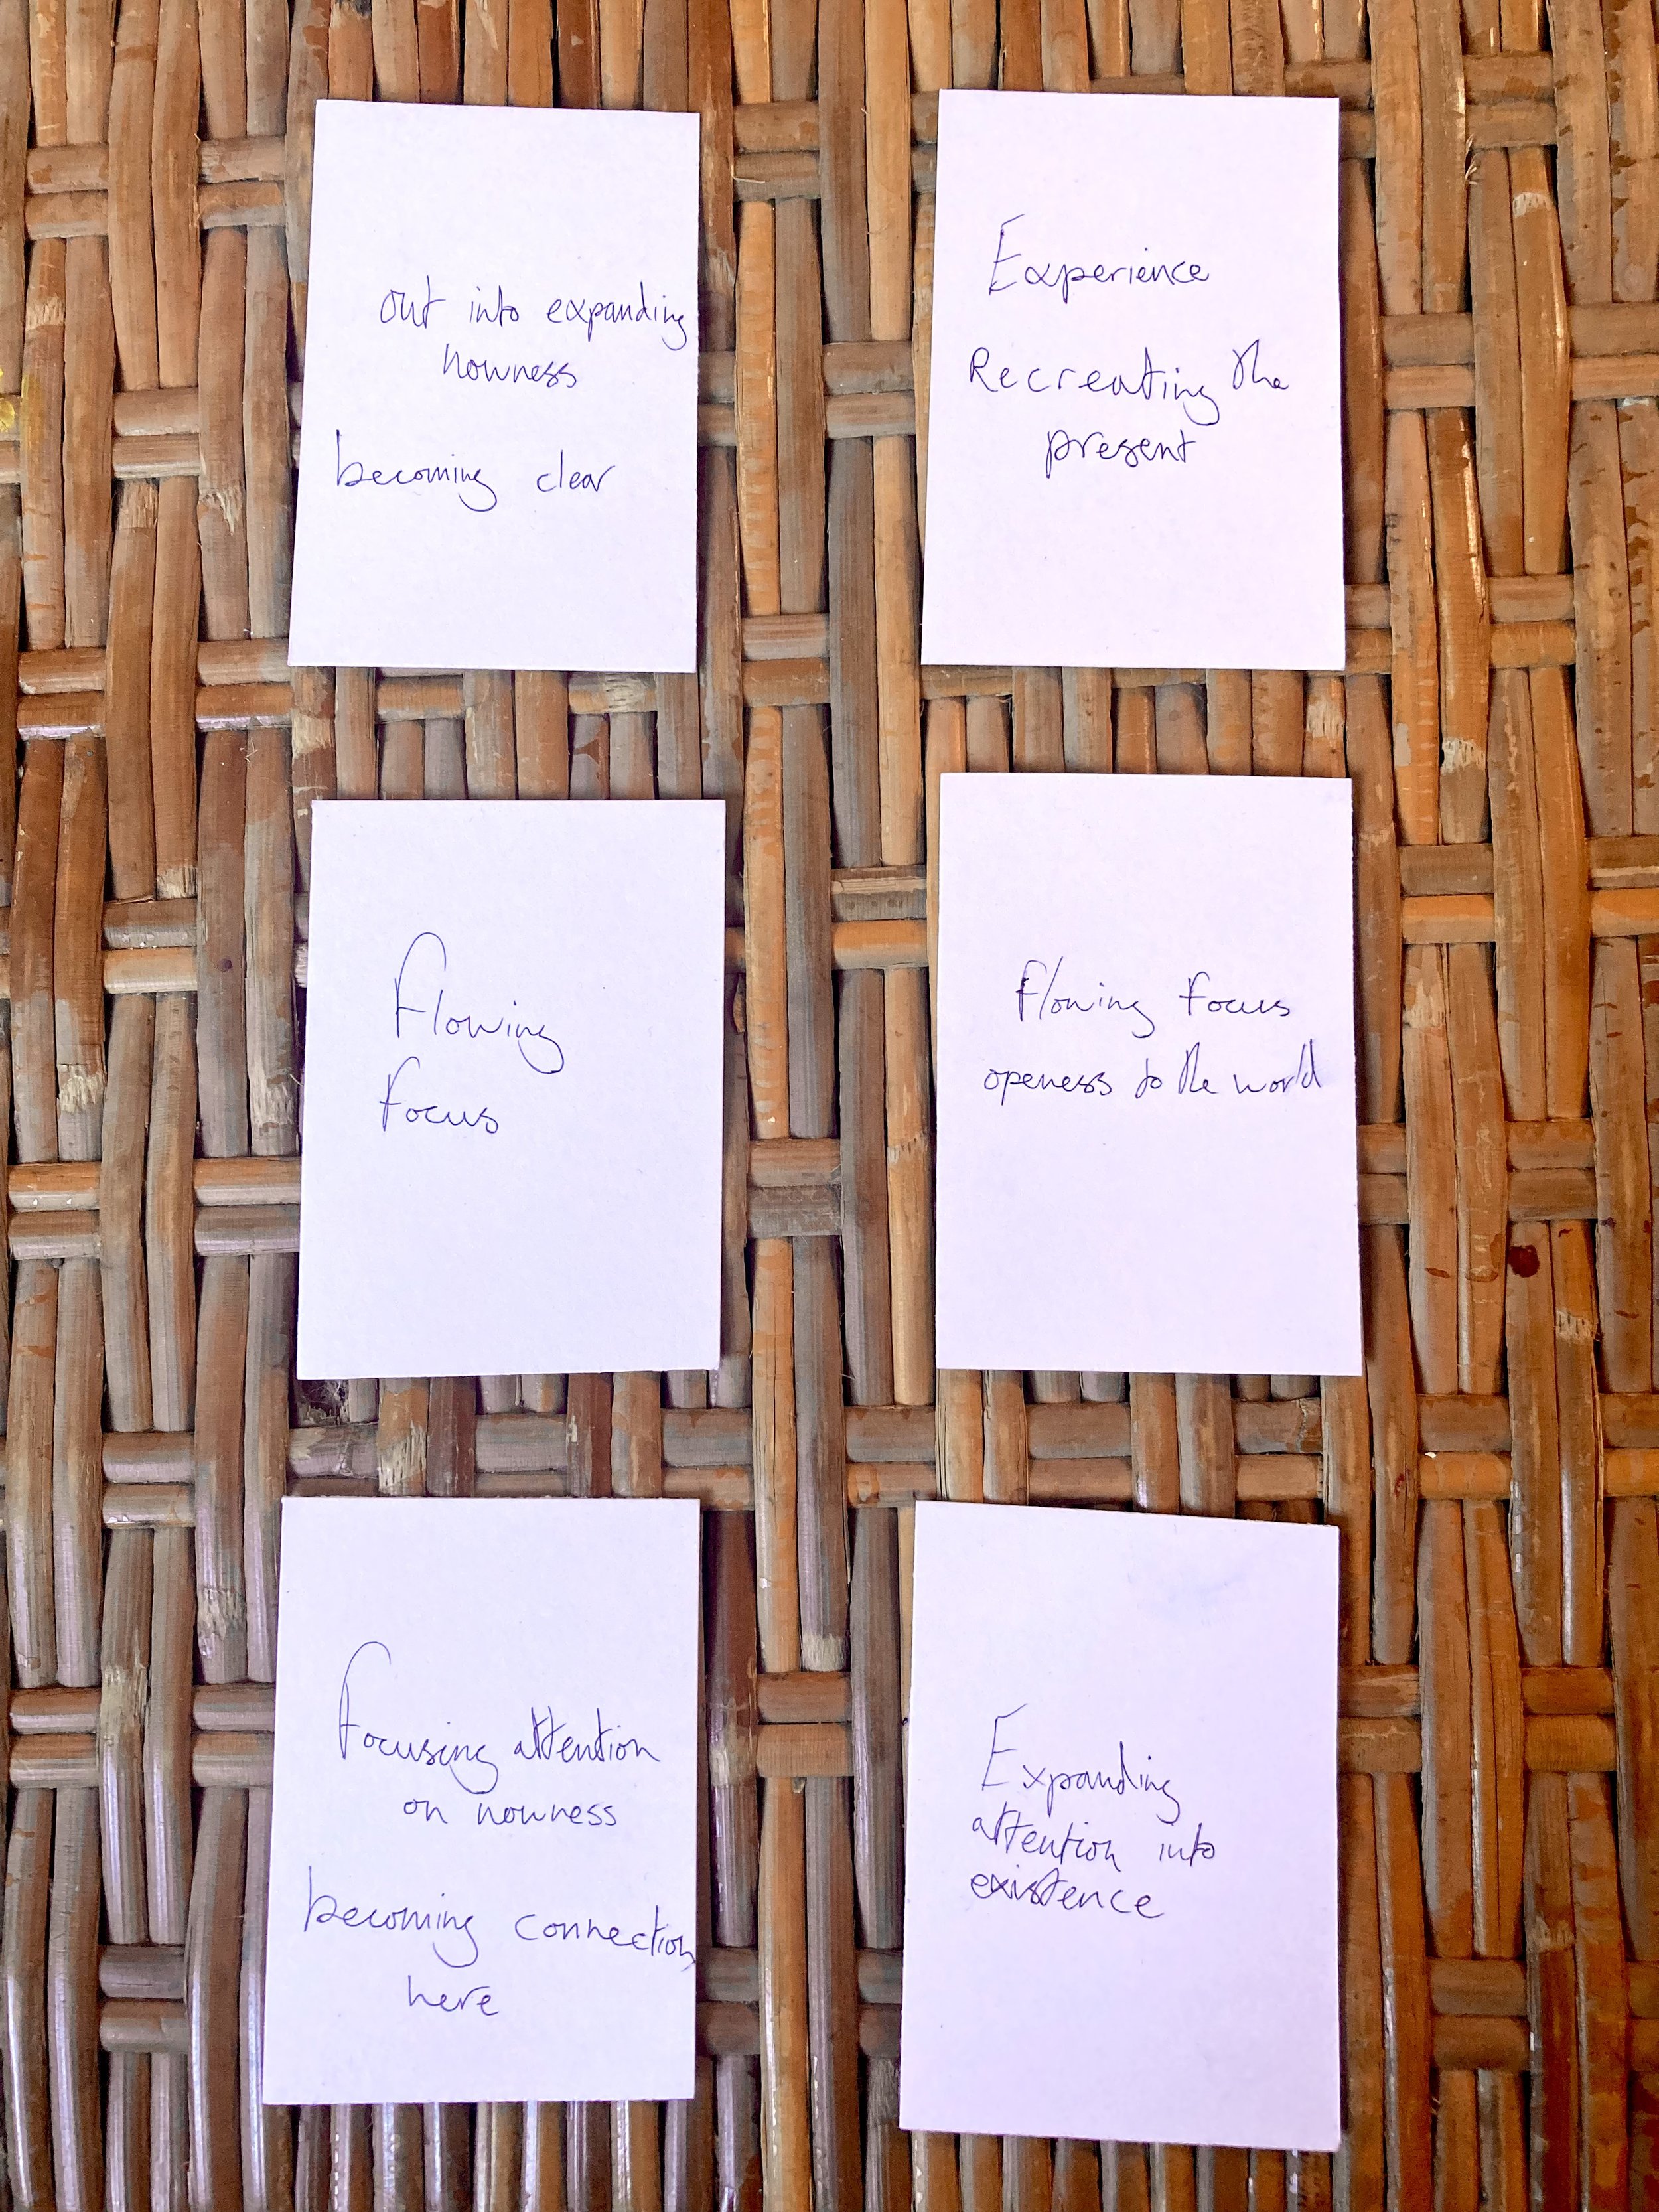 out into expanding
nowness
becoming clear
Experience
Recreating the
present
Flowing
Focus
Flowing Focus
openess to the world
Focusing attention
on nowness
becoming connection
here
Expanding
attention into
existence